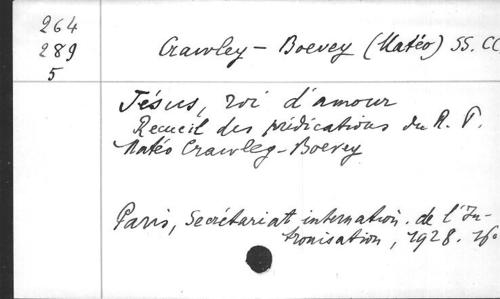 264
289
5
Crawley - Boevey (Matéo) SS. CC
Jésus, roi d'amour
Recueil des prédications du R. P.
Matéo Crawley-Boevey
Paris, Secrétariat internation. de l'In-
tronisation, 1928. 16°